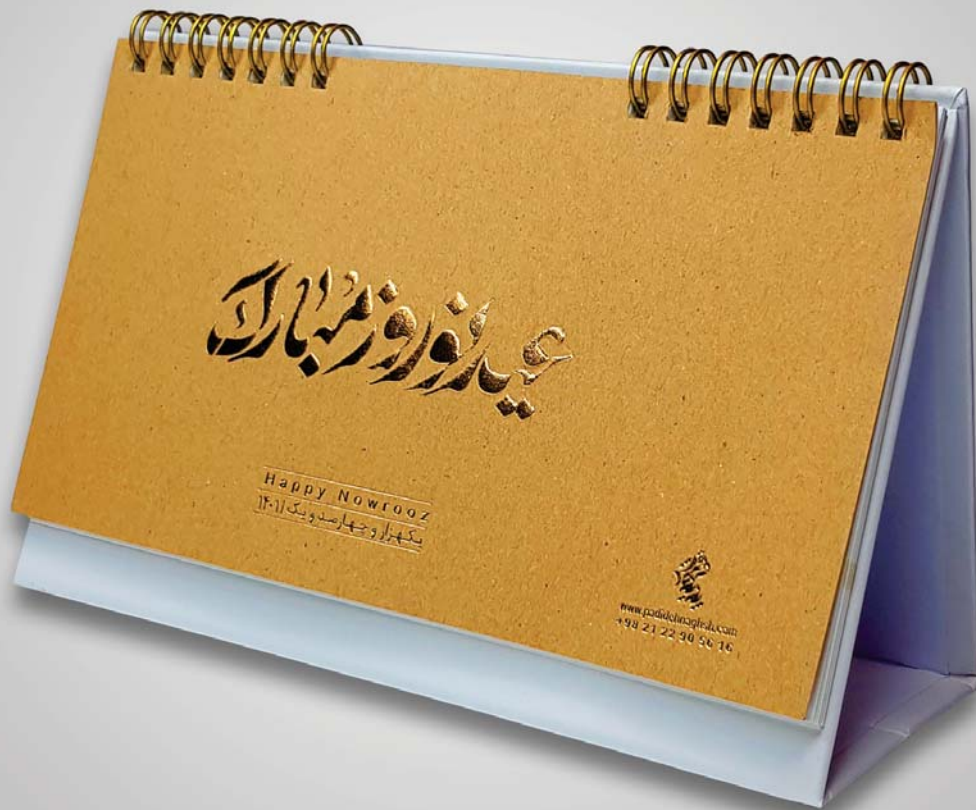 عید نوروز مبارک
Happy Nowrooz
یکهزار و چهارصد و یک / ۱۴۰۱
www.padidehnaghsh.com
+98 21 22 90 56 16